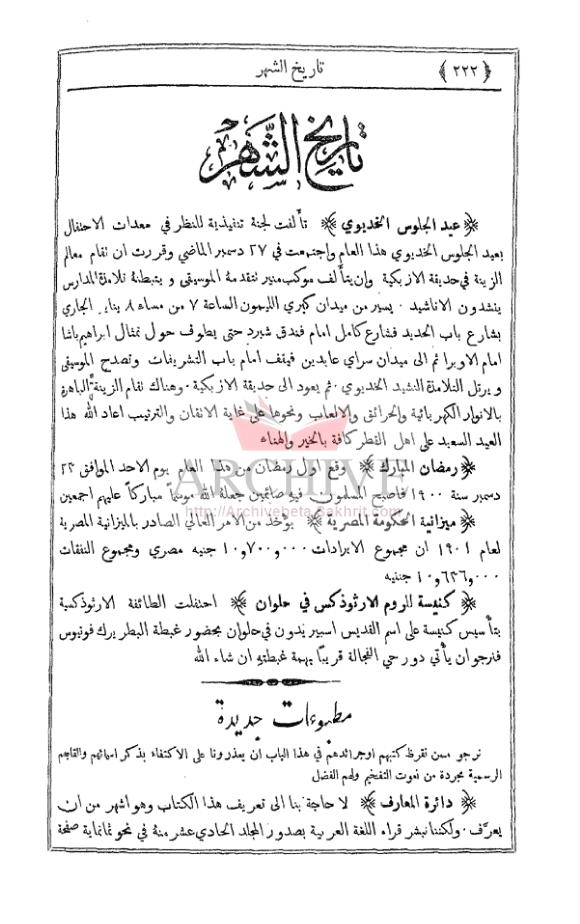 ﴿ ٢٢٢ ﴾
تاريخ الشهر
تاريخ الشَّهر
﴿ عيد الجلوس الخديوي ﴾ تألفت لجنة تنفيذية للنظر في معدات الاحتفال
بعيد الجلوس الخديوي هذا العام واجتمعت في ٢٧ دسمبر الماضي وقررت ان تقام معالم
الزينة في حديقة الازبكية وان يتألف موكب منير تتقدمهُ الموسيقى و يتبطنهُ تلامذة المدارس
ينشدون الاناشيد ٠ يسير من ميدان كبري الليمون الساعة ٧ من مساء ٨ يناير الجاري
بشارع باب الحديد فشارع كامل امام فندق شبرد حتى يطوف حول تمثال ابراهيم باشا
امام الاوبرا ثم الى ميدان سراي عابدين فيقف امام باب التشريفات وتصدح الموسيقى
و يرتل التلامذة النشيد الخديوي ٠ ثم يعود الى حديقة الازبكية ٠ وهناك تقام الزينة الباهرة
بالانوار الكهربائية والحرائق والالعاب ونحوها على غاية الاتقان والترتيب اعاد الله هذا
العيد السعيد على اهل القطر كافة بالخير والهناء
ARCHIVE
﴿ رمضان المبارك ﴾ وقع اول رمضان من هذا العام يوم الاحد الموافق ٢٣
دسمبر سنة ١٩٠٠ فاصبح المسلمون فيه صائمين جعلهُ الله موسمًا مباركًا عليهم اجمعين
http://Archivebeta.Sakhrit.com
﴿ ميزانية الحكومة المصرية ﴾ يؤخذ من الامر العالي الصادر بالميزانية المصرية
لعام ١٩٠١ ان مجموع الايرادات ١٠٫٧٠٠٫٠٠٠ جنيه مصري ومجموع النفقات
١٠٫٦٣٦٫٠٠٠ جنيه
﴿ كنيسة للروم الارثوذكس في حلوان ﴾ احتفلت الطائفة الارثوذكسية
بتأسيس كنيسة على اسم القديس اسبيريدون في حلوان بحضور غبطة البطريرك فوتيوس
فنرجو ان يأتي دور حي الفجالة قريبًا بهمة غبطتهِ ان شاء الله
مطبوعات جديدة
نرجو ممن نقرظ كتبهم او جرائدهم في هذا الباب ان يعذرونا على الاكتفاء بذكر اسمائهم والقابهم
الرسمية مجردة من نعوت التفخيم ولهم الفضل
﴿ دائرة المعارف ﴾ لا حاجة بنا الى تعريف هذا الكتاب وهو اشهر من ان
يعرَّف ٠ ولكننا نبشر قراء اللغة العربية بصدور المجلد الحادي عشر منهُ في نحو ثمانماية صفحة